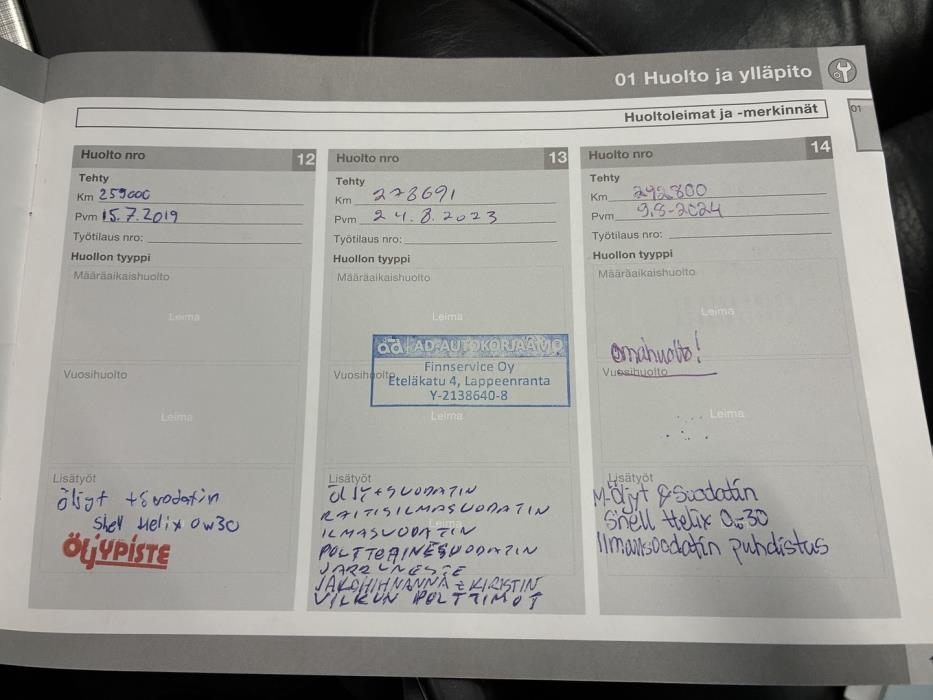 01 Huolto ja ylläpito
01
Huoltoleimat ja -merkinnät
Huolto nro 12
Tehty
Km 259000
Pvm 15.7.2019
Työtilaus nro:
Huollon tyyppi
Määräaikaishuolto
Leima
Vuosihuolto
Leima
Lisätyöt
Öljyt + Suodatin
Shell Helix 0w30
ÖLJYPISTE
Huolto nro 13
Tehty
Km 278691
Pvm 24.8.2023
Työtilaus nro:
Huollon tyyppi
Määräaikaishuolto
Leima
ad AD-AUTOKORJAAMO
Finnservice Oy
Vuosihuolto
Eteläkatu 4, Lappeenranta
Y-2138640-8
Leima
Lisätyöt
ÖLJY+SUODATIN
RAITISILMASUODATIN
Leima
ILMASUODATIN
POLTTOAINESUODATIN
JARRUNESTE
JAKOHIHNANNA + KIRISTIN
VILKUN POLTTIMOT
Huolto nro 14
Tehty
Km 292800
Pvm 9.8-2024
Työtilaus nro:
Huollon tyyppi
Määräaikaishuolto
Leima
omahuolto!
Vuosihuolto
Leima
Lisätyöt
M-Öljyt & Suodatin
Shell Helix 0w-30
Ilmansuodatin puhdistus